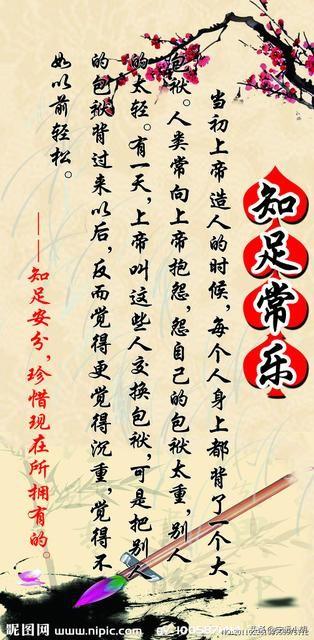 知足常乐
当初上帝造人的时候，每个人身上都背了一个大
包袱。人类常向上帝抱怨，怨自己的包袱太重，别人
的太轻。有一天，上帝叫这些人交换包袱，可是把别人
的包袱背过来以后，反而觉得更觉得沉重，觉得不
如以前轻松。
——知足安分，珍惜现在所拥有的。
昵图网
www.nipic.com